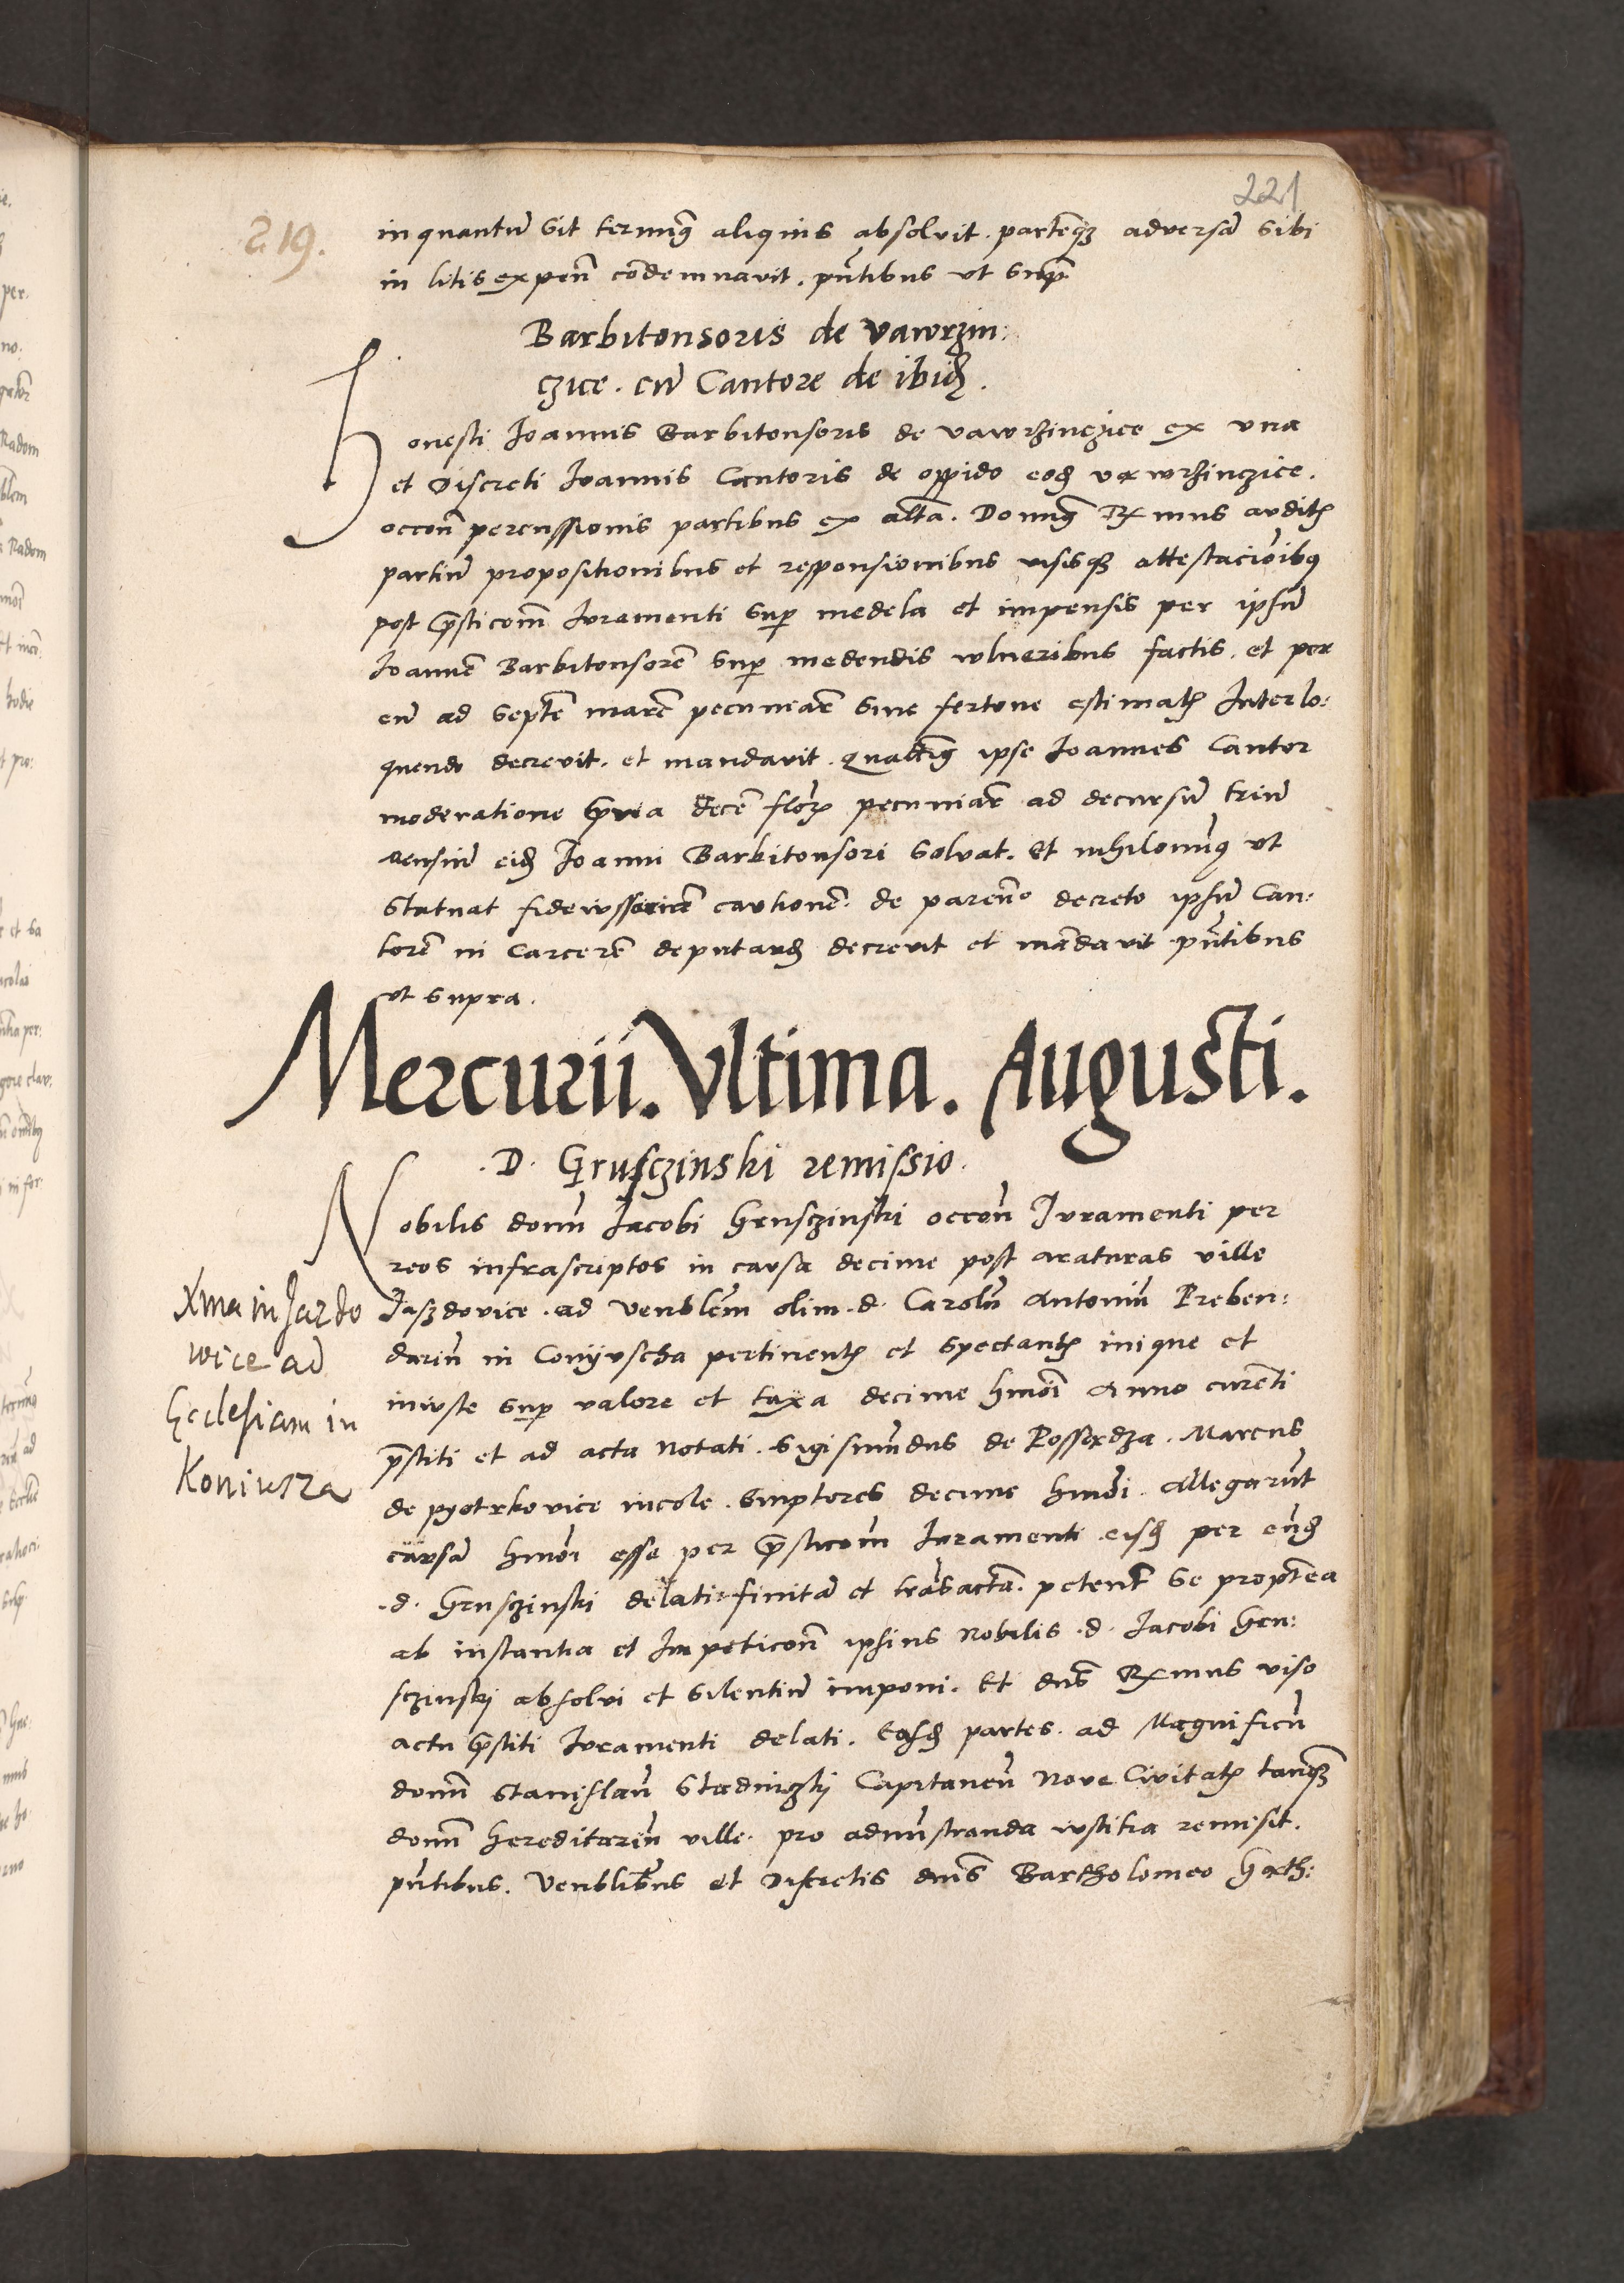 221
219.
inquantu͂ sit terminq aliquis absolvit. parte͂q₃ adversa͂ sibi
in litis expen͂ co͂demnavit. pn͂tibus ut sup͂
Barbitonsoris de Vawrzin:
czice. cu͂ Cantore de ibid͂.
Honesti Joannis Barbitonsoris de vawrzinczice ex una
et Discreti Joannis Cantoris de oppido eod͂ vawrzinczice.
occon͂ percussionis partibus ex alta͂. Domnq͂ Rxmus audit͂
partiu͂ propositionibus et responsionibus visisq₃ attestacio͂ibq
post p͂sticom͂ Juramenti sup͂ medela et impensis per ipsu͂
Joanne͂ Barbitonsore͂ sup͂ medendis vulneribus factis. et per
eu͂ ad septe͂ marc͂ pecuniar͂ sine fertone estimat͂ Interlo:
quendo decrevit. et mandavit. quat͂nq ipse Joannes Cantor
moderatione p͂via dece͂ flor͂ pecuniar͂ ad decursu͂ triu͂
mensiu͂ eid͂ Joanni Barbitonsori solvat. Et nihilominq ut
statuat fideiussoria͂ cautione͂. de paren͂o decreto ipsu͂ Can:
tore͂ in Carcere͂ deputand͂ decrevit et ma͂davit pn͂tibus
ut supra.
Mercurii. Ultima. Augusti.
.D. Grusczinski remissio.
Nobilis domn͂ Jacobi Grusczinski occon͂ Juramenti per
reos infrascriptos in causa decime post araturas ville
Jaszdovice. ad venble͂m olim .d. Carolu͂ Antoniu͂ Preben:
dariu͂ in Conijuscha pertinent͂ et spectant͂ inique et
iniuste sup͂ valore et taxa decime hmo͂i Anno cure͂nti
p͂stiti et ad acta notati. Sigismu͂dus de Possadza. Marcus
de pyotrkovice incole. Emptores decime hmo͂i. Allegaru͂t
causa͂ hmo͂i esse per p͂sticom͂ Juramenti eisd͂ per eu͂d͂
.d. Grusczinski delati finita͂ et tra͂sacta͂. petent͂ se propt͂ea
ab instantia et Impeticon͂ ipsius Nobilis .d. Jacobi Gru:
sczinskj absolvi et silentiu͂ imponi. Et dns͂ Rxmus viso
actu p͂stiti Juramenti delati. Eosd͂ partes. ad Magnificu͂
domn͂ Stanislau͂ Stadniczkj Capitaneu͂ Nove Civitat͂ tanq₃͂
domn͂ hereditariu͂ ville. pro admi͂stranda iustitia remisit.
pn͂tibus. Venblib͂us et Discretis dnis͂ Bartholomeo Gath:
Xma in Jazdo
wice ad
Ecclesiam in
Koniusza